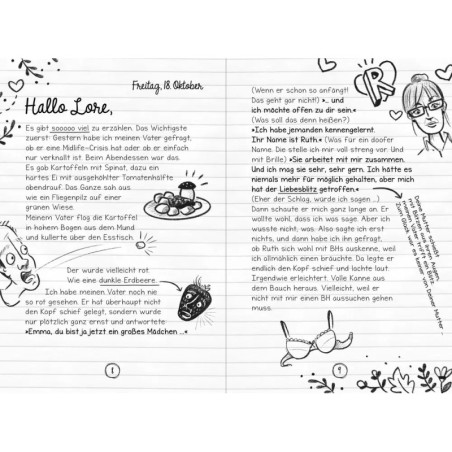 Freitag, 18. Oktober
Hallo Lore,
Es gibt sooooo viel zu erzählen. Das Wichtigste
zuerst: Gestern habe ich meinen Vater gefragt,
ob er eine Midlife-Crisis hat oder ob er einfach
nur verknallt ist. Beim Abendessen war das.
Es gab Kartoffeln mit Spinat, dazu ein
hartes Ei mit ausgehöhlter Tomatenhälfte
obendrauf. Das Ganze sah aus
wie ein Fliegenpilz auf einer
grünen Wiese.
Meinem Vater flog die Kartoffel
in hohem Bogen aus dem Mund
und kullerte über den Esstisch.
Der wurde vielleicht rot.
Wie eine dunkle Erdbeere.
Ich habe meinen Vater noch nie
so rot gesehen. Er hat überhaupt nicht
den Kopf schief gelegt, sondern wurde
nur plötzlich ganz ernst und antwortete
»Emma, du bist ja jetzt ein großes Mädchen ...«
8
(Wenn er schon so anfängt!
Das geht gar nicht!) »... und
ich möchte offen zu dir sein.«
(Was soll das denn heißen?)
»Ich habe jemanden kennengelernt.
Ihr Name ist Ruth.« (Was für ein doofer
Name. Die stelle ich mir voll streng vor. Und
mit Brille.) »Sie arbeitet mit mir zusammen.
Und ich mag sie sehr, sehr gern. Ich hätte es
niemals mehr für möglich gehalten, aber mich
hat der Liebesblitz getroffen.«
(Eher der Schlag, würde ich sagen ...)
Dann schaute er mich ganz lange an. Er
wollte wohl, dass ich was sage. Aber ich
wusste nicht, was. Also sagte ich erst
nichts, und dann habe ich ihn gefragt,
ob Ruth sich wohl mit BHs auskenne, weil
ich allmählich einen bräuchte. Da legte er
endlich den Kopf schief und lachte laut.
Irgendwie erleichtert. Volle Kanne aus
dem Bauch heraus. Vielleicht, weil er
nicht mit mir einen BH aussuchen gehen
muss.
R
9